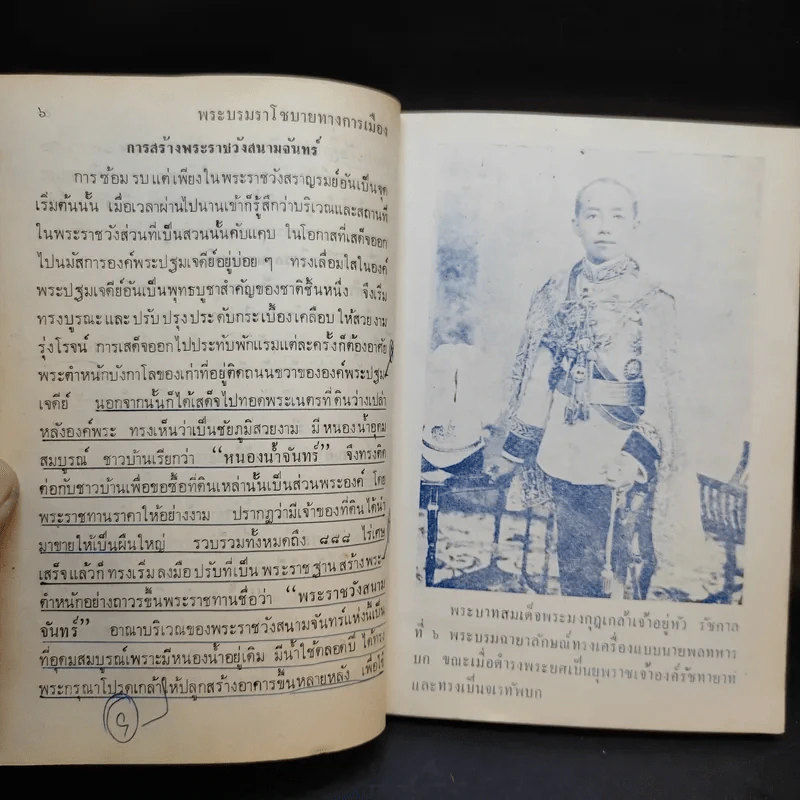 ๖ พระบรมราโชบายทางการเมือง
การสร้างพระราชวังสนามจันทร์
การซ้อมรบแต่เพียงในพระราชวังสราญรมย์อันเป็นจุด
เริ่มต้นนั้น เมื่อเวลาผ่านไปนานเข้าก็รู้สึกว่าบริเวณและสถานที่
ในพระราชวังส่วนที่เป็นสวนนั้นคับแคบ ในโอกาสที่เสด็จออก
ไปนมัสการองค์พระปฐมเจดีย์อยู่บ่อย ๆ ทรงเลื่อมใสในองค์
พระปฐมเจดีย์อันเป็นพุทธบูชาสำคัญของชาติชิ้นหนึ่ง จึงเริ่ม
ทรงบูรณะและปรับปรุงประดับกระเบื้องเคลือบให้สวยงาม
รุ่งโรจน์ การเสด็จออกไปประทับพักแรมแต่ละครั้งก็ต้องอาศัย
พระตำหนักบังกาโลของเก่าที่อยู่ติดถนนขวาขององค์พระปฐม
เจดีย์ นอกจากนั้นก็ได้เสด็จไปทอดพระเนตรที่ดินว่างเปล่า
หลังองค์พระ ทรงเห็นว่าเป็นชัยภูมิสวยงาม มีหนองน้ำอุดม
สมบูรณ์ ชาวบ้านเรียกว่า “หนองน้ำจันทร์” จึงทรงติด
ต่อกับชาวบ้านเพื่อขอซื้อที่ดินเหล่านั้นเป็นส่วนพระองค์ โดย
พระราชทานราคาให้อย่างงาม ปรากฏว่ามีเจ้าของที่ดินได้นำ
มาขายให้เป็นผืนใหญ่ รวบรวมทั้งหมดถึง ๘๘๘ ไร่เศษ
เสร็จแล้วก็ทรงเริ่มลงมือปรับที่เป็นพระราชฐานสร้างพระ
ตำหนักอย่างถาวรขึ้นพระราชทานชื่อว่า “พระราชวังสนาม
จันทร์” อาณาบริเวณของพระราชวังสนามจันทร์แห่งนี้เป็น
ที่อุดมสมบูรณ์เพราะมีหนองน้ำอยู่เดิม มีน้ำใช้ตลอดปี ได้ทรง
พระกรุณาโปรดเกล้าให้ปลูกสร้างอาคารขึ้นหลายหลัง เพื่อใช้
พระบาทสมเด็จพระมงกุฎเกล้าเจ้าอยู่หัว รัชกาล
ที่ ๖ พระบรมฉายาลักษณ์ทรงเครื่องแบบนายพลทหาร
บก ขณะเมื่อดำรงพระยศเป็นยุพราชเจ้าองค์รัชทายาท
และทรงเป็นจเรทัพบก